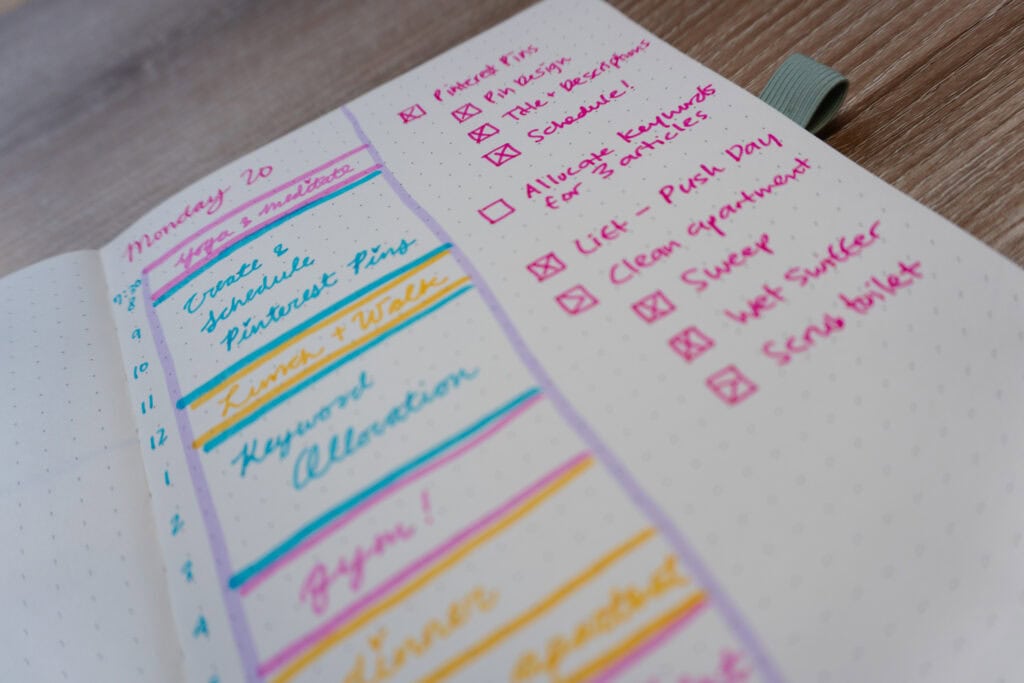 Monday 20
Yoga & meditate
Create &
Schedule
Pinterest Pins
Lunch + Walk
Keyword
Allocation
gym!
dinner
apartment
7:30
8
9
10
11
12
1
2
3
4
Pinterest Pins
Pin Design
Title + Descriptions
Schedule!
Allocate Keywords
for 3 articles
Lift - Push Day
Clean apartment
Sweep
Wet Swiffer
Scrub toilet